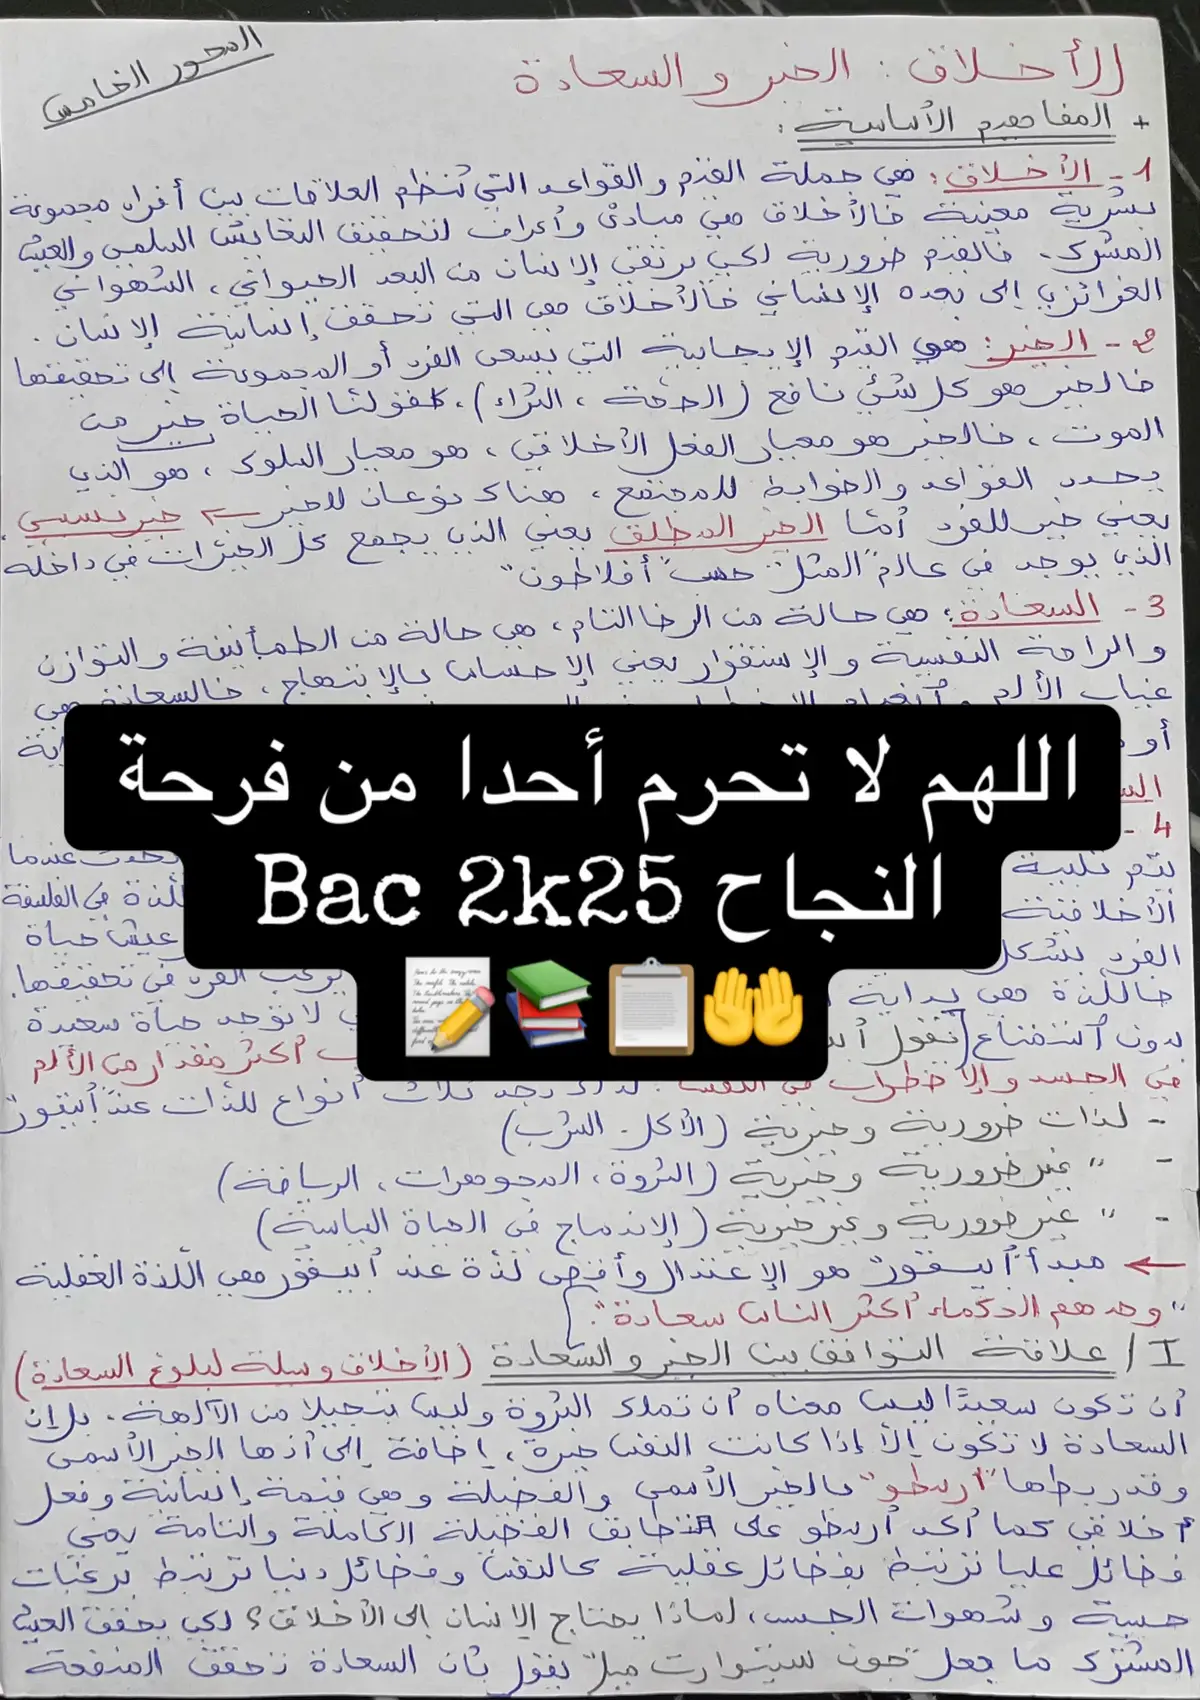 المحور الخامس
الأخلاق : الخير والسعادة
+ المفاهيم الأساسية :
1 - الأخلاق : هي جملة القيم والقواعد التي تنظم العلاقات بين أفراد مجموعة
بشرية معينة فالأخلاق هي مبادئ وأعراف لتحقيق التعايش السلمي والعيش
المشترك. فالقيم ضرورية لكي يرتقي الإنسان من البعد الحيواني، الشهواني
الغرائزي إلى بعده الإنساني فالأخلاق هي التي تحقق إنسانية الإنسان.
2 - الخير : هو القيم الإيجابية التي يسعى الفرد أو المجموعة إلى تحقيقها
فالخير هو كل شيء نافع (الصحة ، الثراء)، كقولنا الحياة خير من
الموت ، فالخير هو معيار الفعل الأخلاقي ، هو معيار السلوك ، هو الذي
يحدد القواعد والضوابط للمجتمع ، هناك نوعان للخير ← خير نسبي
يعني خير للفرد أمّا الخير المطلق يعني الذي يجمع كل الخيرات في داخله
الذي يوجد في عالم "المثل" حسب "أفلاطون"
3 - السعادة : هي حالة من الرضا التام ، هي حالة من الطمأنينة والتوازن
والراحة النفسية والإستقرار يعني الإحساس بالإبتهاج ، فالسعادة هي
غياب الألم و
أو
4 -
اللهم لا تحرم أحدا من فرحة
النجاح Bac 2k25
يتم تلبية عندما
الأخلاقية للذة في الفلسفة
الفرد بشكل عيش حياة
فاللذة هي بداية يرغب الفرد في تحقيقها.
بدون استمتاع نقول لا توجد حياة سعيدة
أكثر مقدار من الألم
في الجسد والإضطراب في النفس . لذلك نجد ثلاث أنواع للذات عند "أبيقور"
- لذات ضرورية وخيرية (الأكل - الشرب)
- " غير ضرورية وخيرية (الثروة ، المجوهرات ، الرياضة)
- " غير ضرورية وغير خيرية (الإندماج في الحياة السياسية)
← مبدأ "أبيقور" هو الإعتدال وأقصى لذة عند أبيقور هي اللذة العقلية
"وحدهم الحكماء أكثر الناس سعادة".
I / علاقة التوافق بين الخير والسعادة (الأخلاق وسيلة لبلوغ السعادة)
أن تكون سعيدًا ليس معناه أن تملك الثروة وليس تبجيلا من الآلهة. بل إن
السعادة لا تكون إلاّ إذا كانت النفس خيرة، إضافة إلى أنها الخير الأسمى
وقد ربطها "أرسطو" بالخير الأسمى والفضيلة وهي قيمة إنسانية وفعل
أخلاقي كما أكد أرسطو على تطابق الفضيلة الكاملة والتامة يعني
فضائل عليا ترتبط بفضائل عقلية كالنفس وفضائل دنيا ترتبط برغبات
حسية وشهوات الجسد، لماذا يحتاج الإنسان إلى الأخلاق؟ لكي يحقق العيش
المشترك ما جعل "جون ستيوارت ميل" يقول بأن السعادة تحقق المنفعة